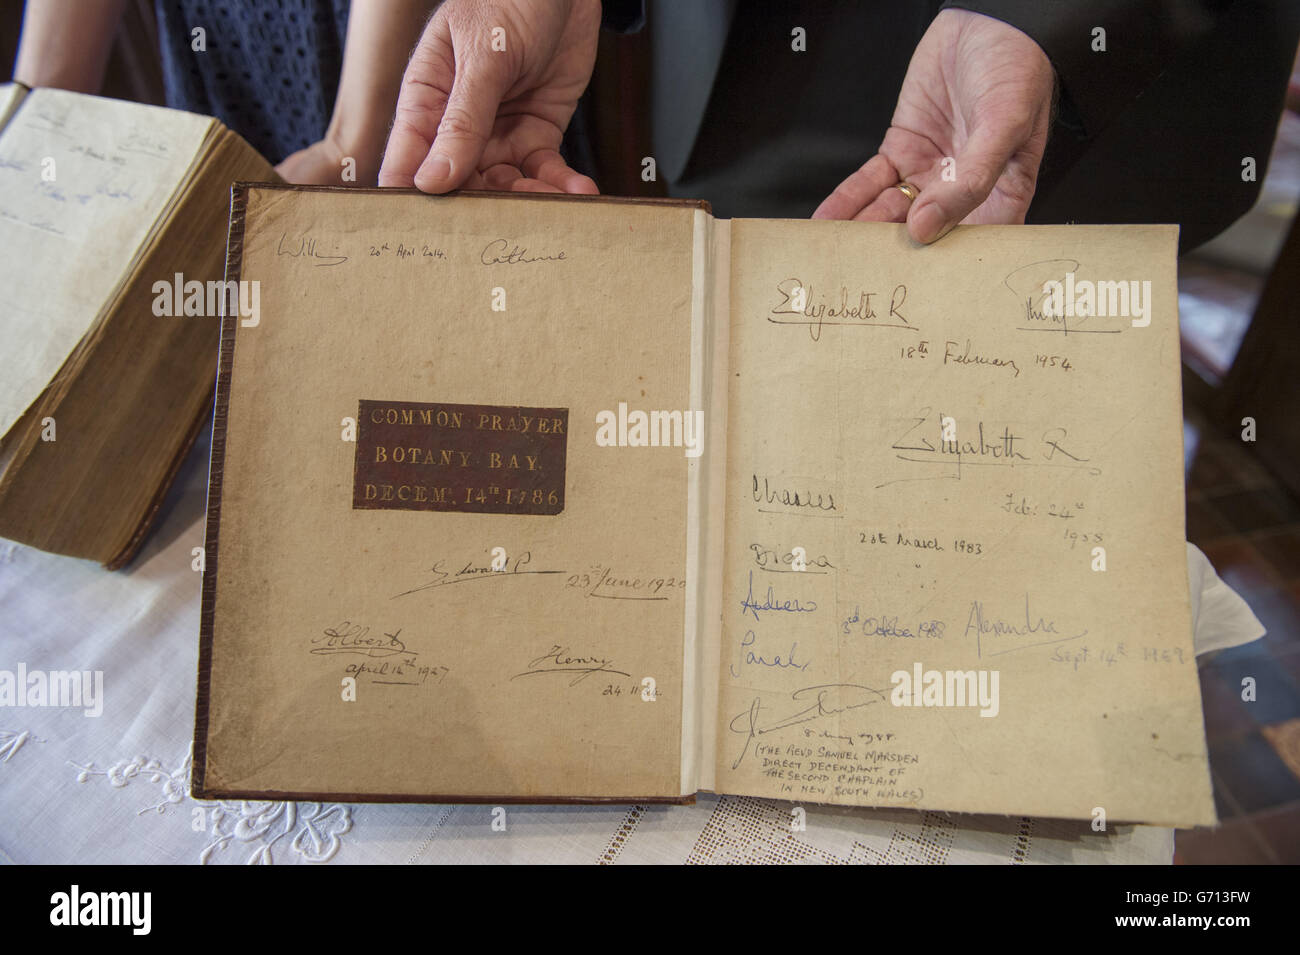 William 20th April 2014. Catherine
COMMON PRAYER
BOTANY BAY
DECEMR. 14TH. 1786
Edward P 23rd June 1920
Albert
April 12th 1927
Henry
24 11
Elizabeth R Philip
18th February 1954
Elizabeth R
Feb: 24th
1958
Charles
28th March 1983
Diana "
Andrew 3rd October 1988 Alexandra
Sarah, Sept 14th
8 May 1988.
(THE REVD SAMUEL MARSDEN
DIRECT DECENDANT OF
THE SECOND CHAPLAIN
IN NEW SOUTH WALES)
alamy
Image ID: G713FW
www.alamy.com